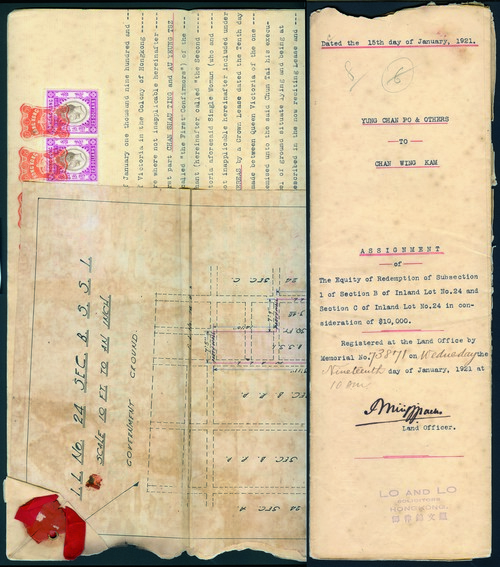 January one thousand nine hundred and
Victoria in the Colony of Hongkong
where not inapplicable hereinafter
rst part CHAN SHAU TING and AU YEUNG TSZ
alled "the First Confirmers") of the
ment (hereinafter called "the Second
toria aforesaid Single Woman (who and
ot inapplicable hereinafter included under
WHEREAS by a Crown Lease dated the Tenth day
made between Queen Victoria of the one
emised unto the said Chun Tai his execu-
el of ground situate lying and being at
escribed in the now reciting Lease and
I. L. No. 24 SEC. B. S. S. 1.
SCALE 10 FT. TO AN INCH
GOVERNMENT GROUND.
24 SEC. C.
SEC. B. R. P.
SEC. B. R. P.
24 SEC. A
Dated the 15th day of January, 1921.
YUNG CHAN PO & OTHERS
TO
CHAN WING KAM
ASSIGNMENT
-of-
The Equity of Redemption of Subsection
1 of Section B of Inland Lot No.24 and
Section C of Inland Lot No.24 in con-
sideration of $10,000.
Registered at the Land Office by
Memorial No. 73871 on Wednesday the
Nineteenth day of January, 1921 at
10 am
Land Officer.
LO AND LO
HONGKONG.